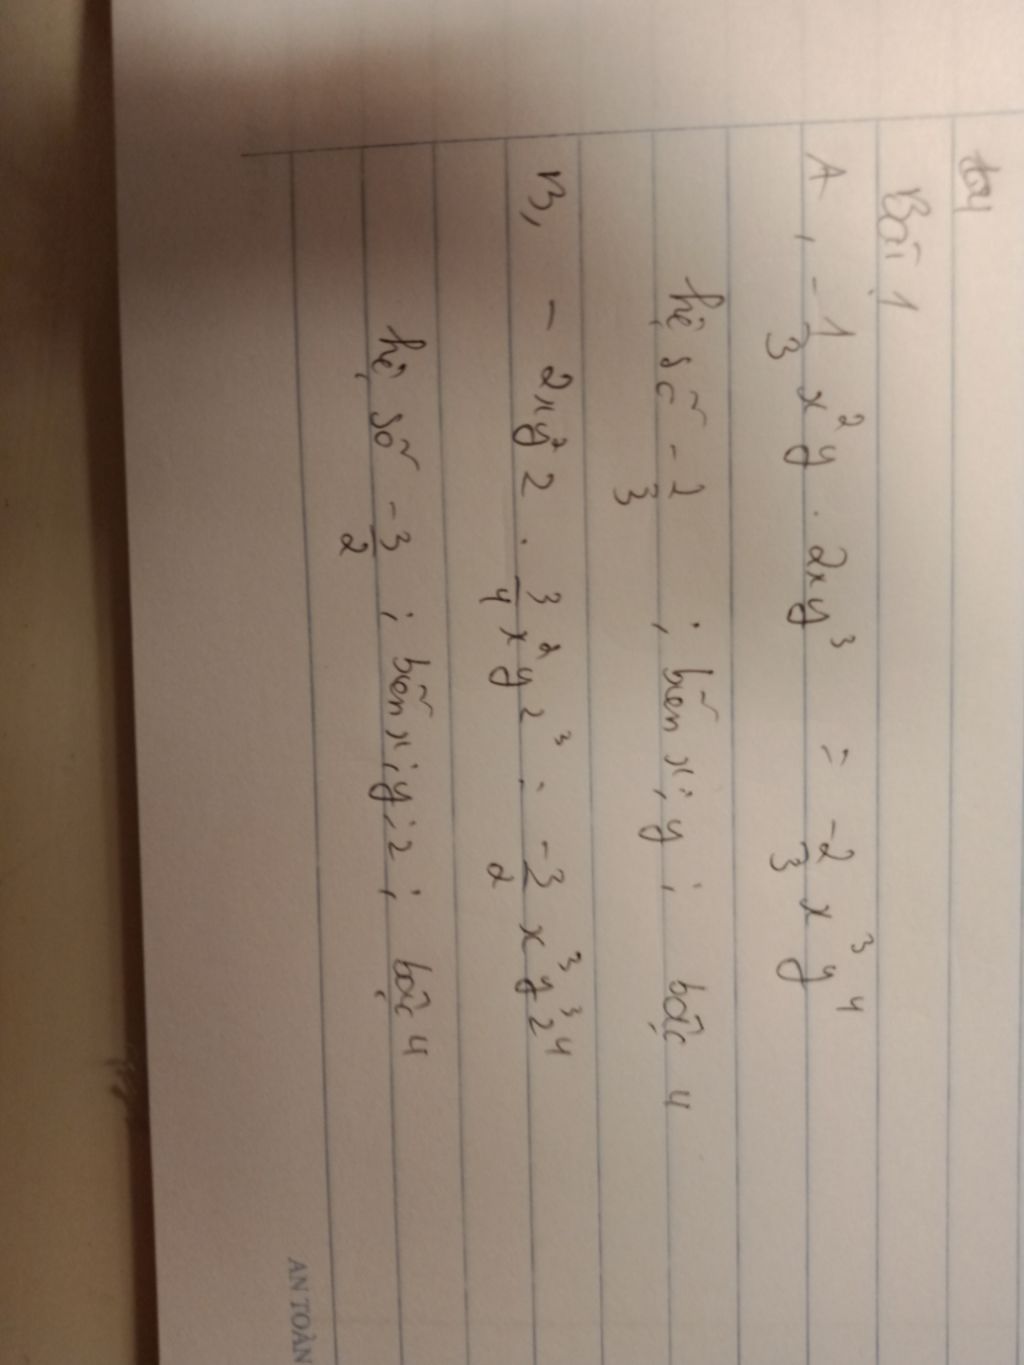 Bài 1
A, -1/3 x²y . 2xy³ = -2/3 x³y⁴
hệ số -2/3 ; biến x;y ; bậc 4
B, - 2xy²z . 3/4 x²yz³ = -3/2 x³y³z⁴
hệ số -3/2 ; biến x;y;z ; bậc 4
AN TOÀN